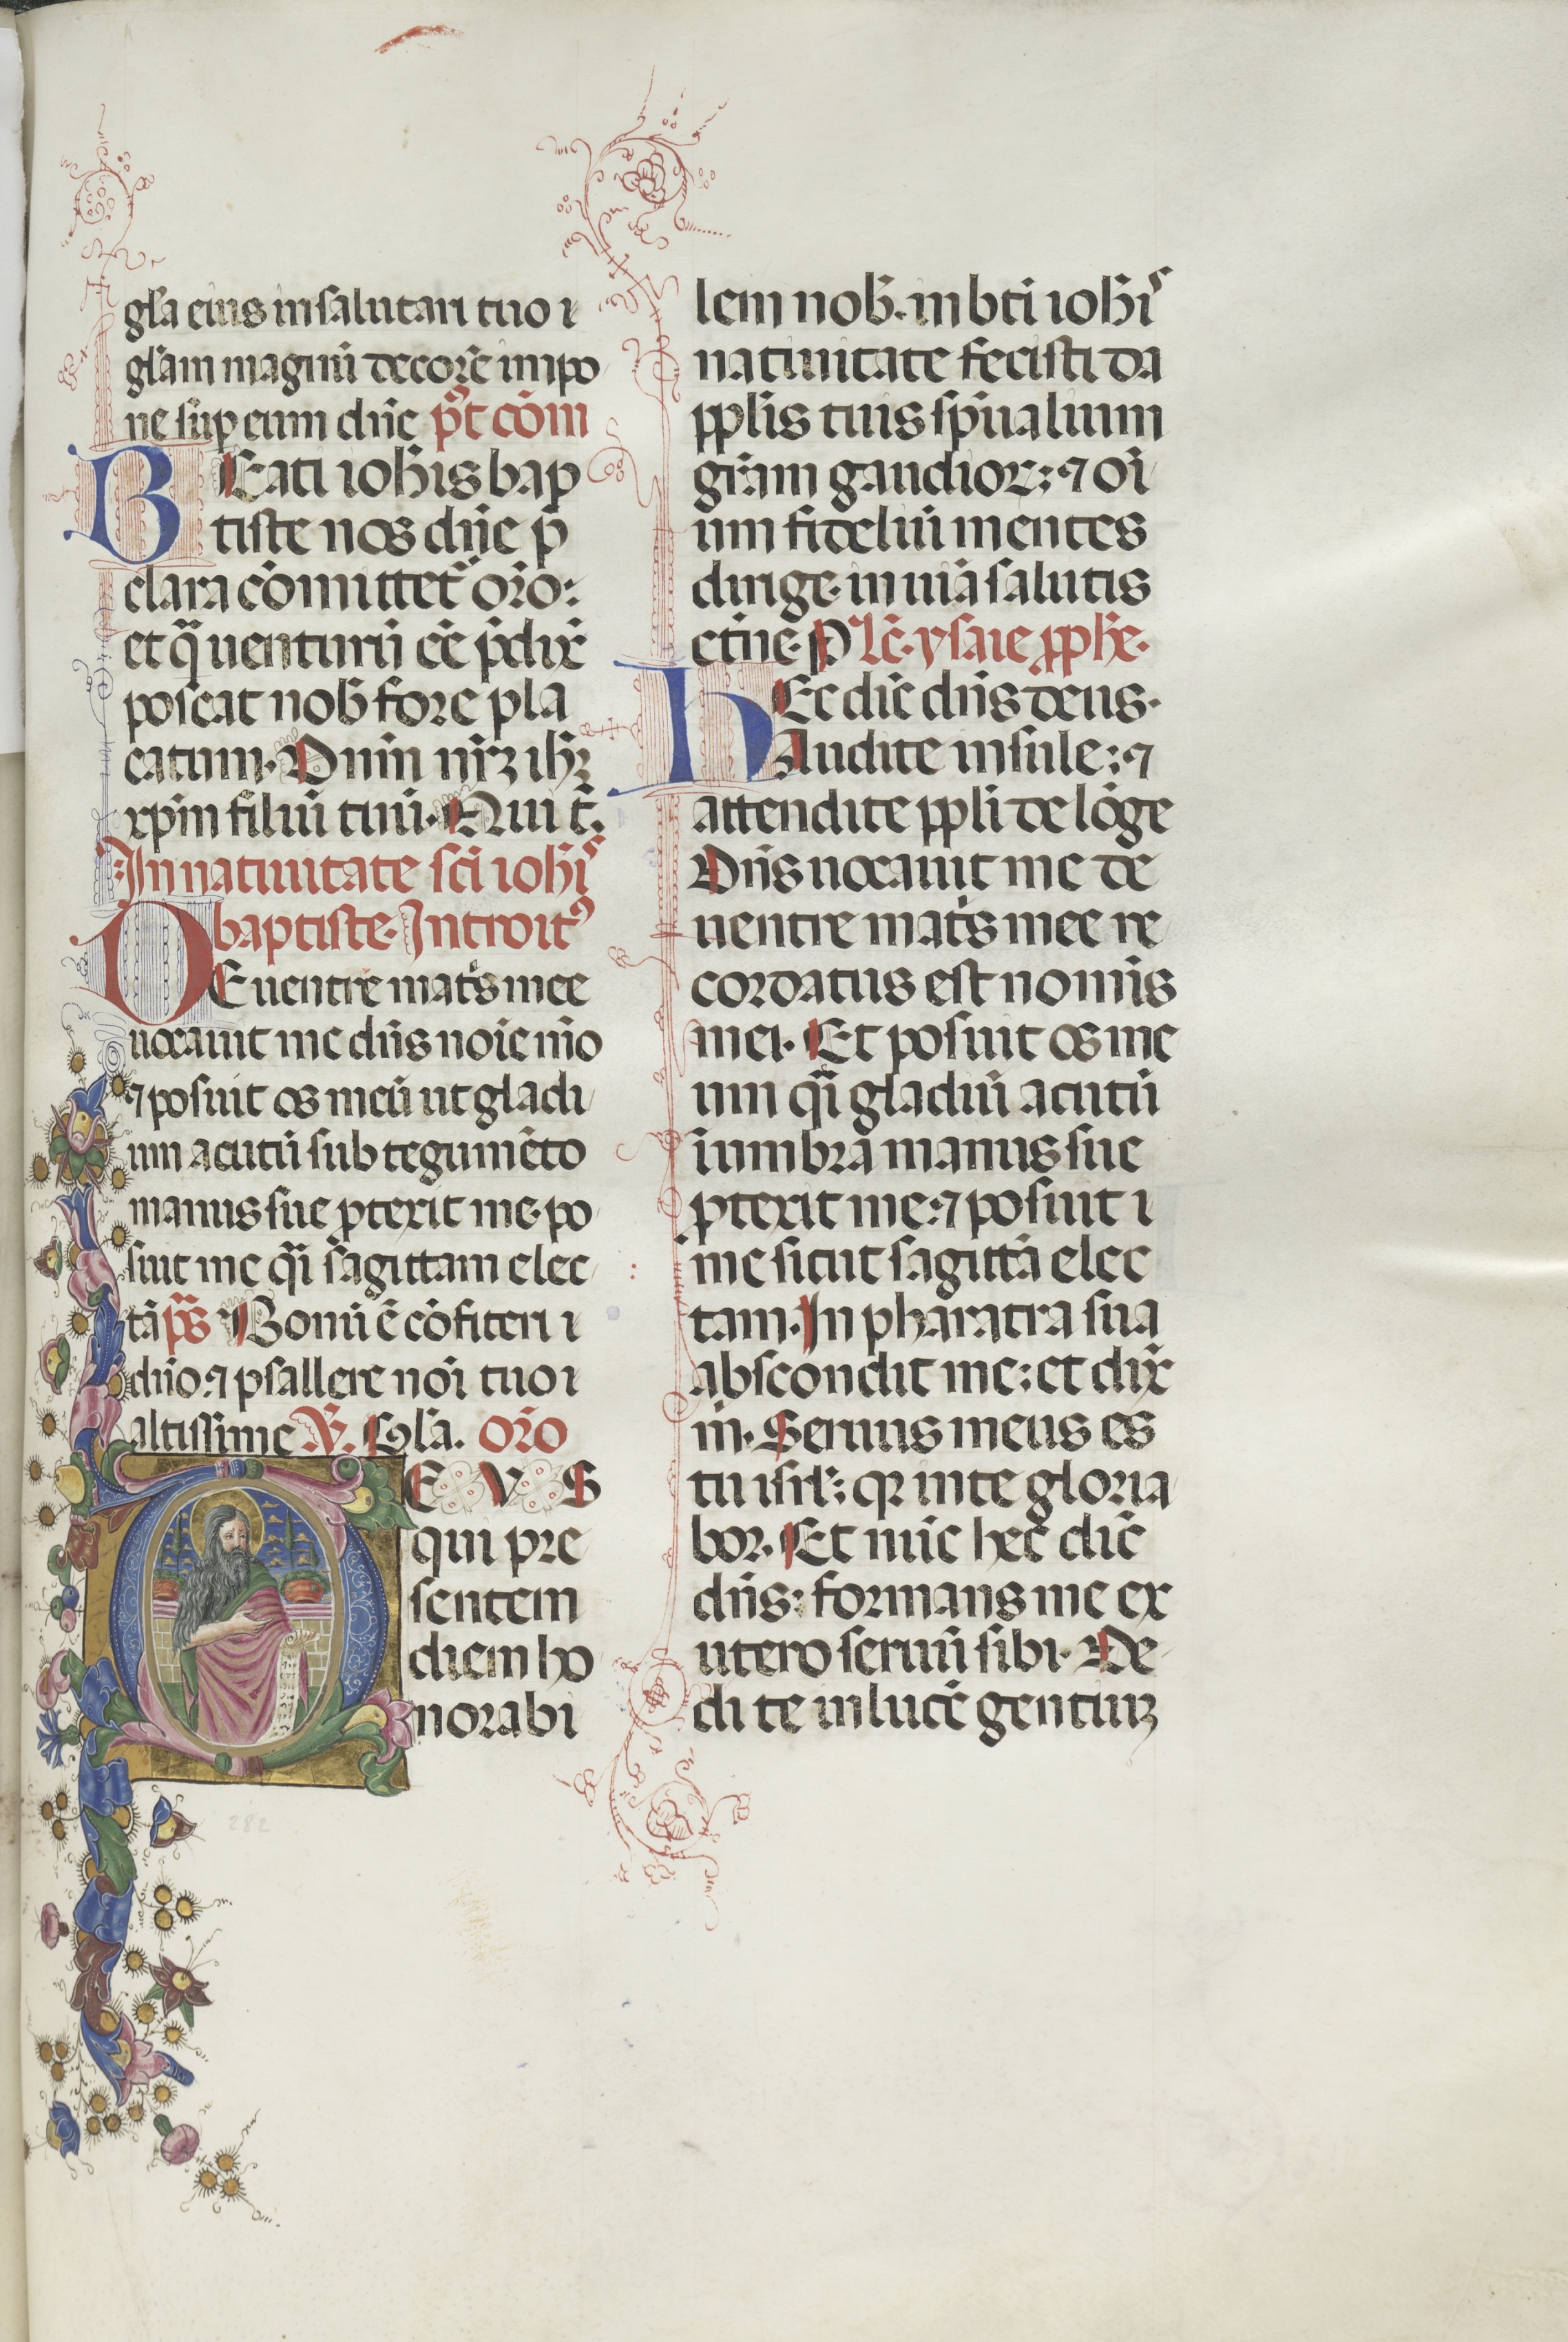 gl̃a eius in salutari tuo ı
gl̃am magnũ decorẽ impo
ne sup̱ eum dñe p̃t cõm
BEati ioh̃is bap
tiste nos dñe p̃
clara cõmittet᷑ oro:
et q̃ uenturũ eẽ p̃dix̃
poscat nob̃ fore pla
catum. Dnm̃ nr̃ꝫ ih̃ꝫ
xp̃m filiũ tuũ. Qui t̃.
In natiuitate sc̃i ioh̃iˢ
baptiste. Introitꝰ
DE uentre mat̃s mee
uocauit me dñs noĩe mõ
⁊ posuit os meũ ut gladi
um acutũ sub tegumẽto
manus sue ꝓterit me. po
suit me q̃i sagittam elec
tã p̃s Bonũ ẽ cõfiteri ı
dño: ⁊ psallere nõi tuo ı
altissime ℣. Gl̃a. Or̃o
DEVS
qui pre
sentem
diem ho
norabi
lem nob̃. in bt̃i ioh̃iˢ
natiuitate fecisti da
pp̱lis tuis sp̃ualium
gr̃am gaudioꝝ: ⁊ oĩ
um fideliũ mentes
dirige. in uiã salutis
et̃ne. P Lc̃. ysaie ꝓph̃e.
HEc dic̃ dñs deus.
Audite insule: ⁊
attendite pp̱li de lõge
Dñs uocauit me de
uentre mat̃s mee re
cordatus est nomĩs
mei. Et posuit os me
um q̃i gladiũ acutũ
iumbra manus sue
ꝓterit me: ⁊ posuit ı
me sicut sagittã elec
tam. In pharatra sua
abscondit me: et dix̃
m̃. Seruus meus es
tu isr̃l: qꝛ in te gloria
bor. Et nũc hec̃ dic̃
dñs: formans me ex
utero seruũ sibi. De
di te in lucẽ gentiuꝫ
282